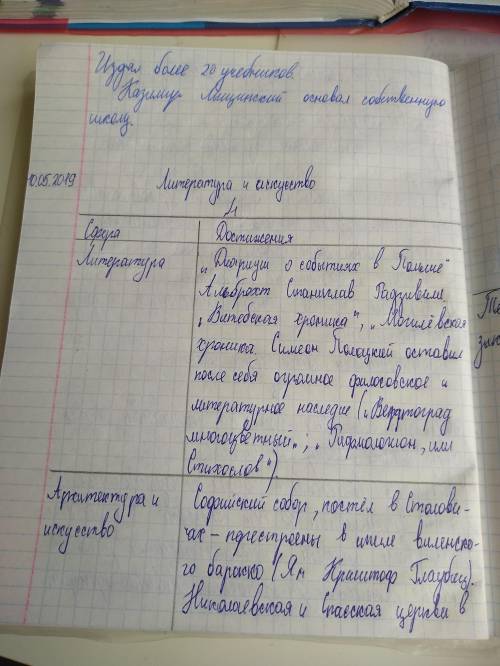 Издал более 20 учебников.
Казимир Лыщинский основал собственную
школу.
10.05.2019 Литература и искусство
Сфера Достижения
Литература
„Диариуш о событиях в Польше"
Альбрехт Станислав Радзивилл.
„Витебская хроника", „Могилёвская
хроника. Симеон Полоцкий оставил
после себя огромное философское и
литературное наследие („Вертоград
многоцветный„; „Рифмологион, или
Стихослов")
Архитектура и
искусство
Софийский собор, костёл в Столови-
чах - перестроены в стиле виленско-
го барокко (Ян Криштоф Глаубиц).
Николаевская и Спасская церкви в